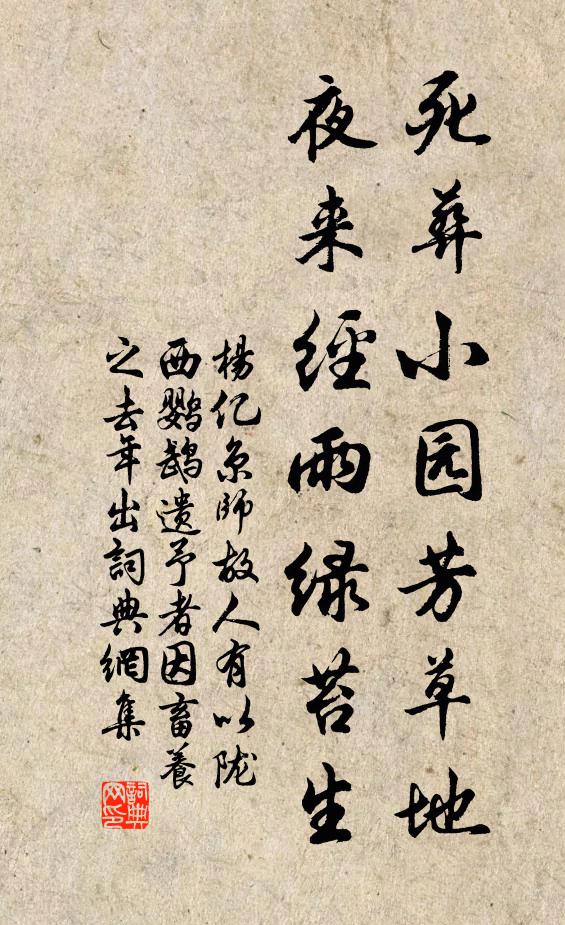 死葬小园芳草地
夜来經雨緑苔生
楊亿京師故人有以陇
西鹦鹉遗予者因畜養
之去年出詞典網集
詞典网印